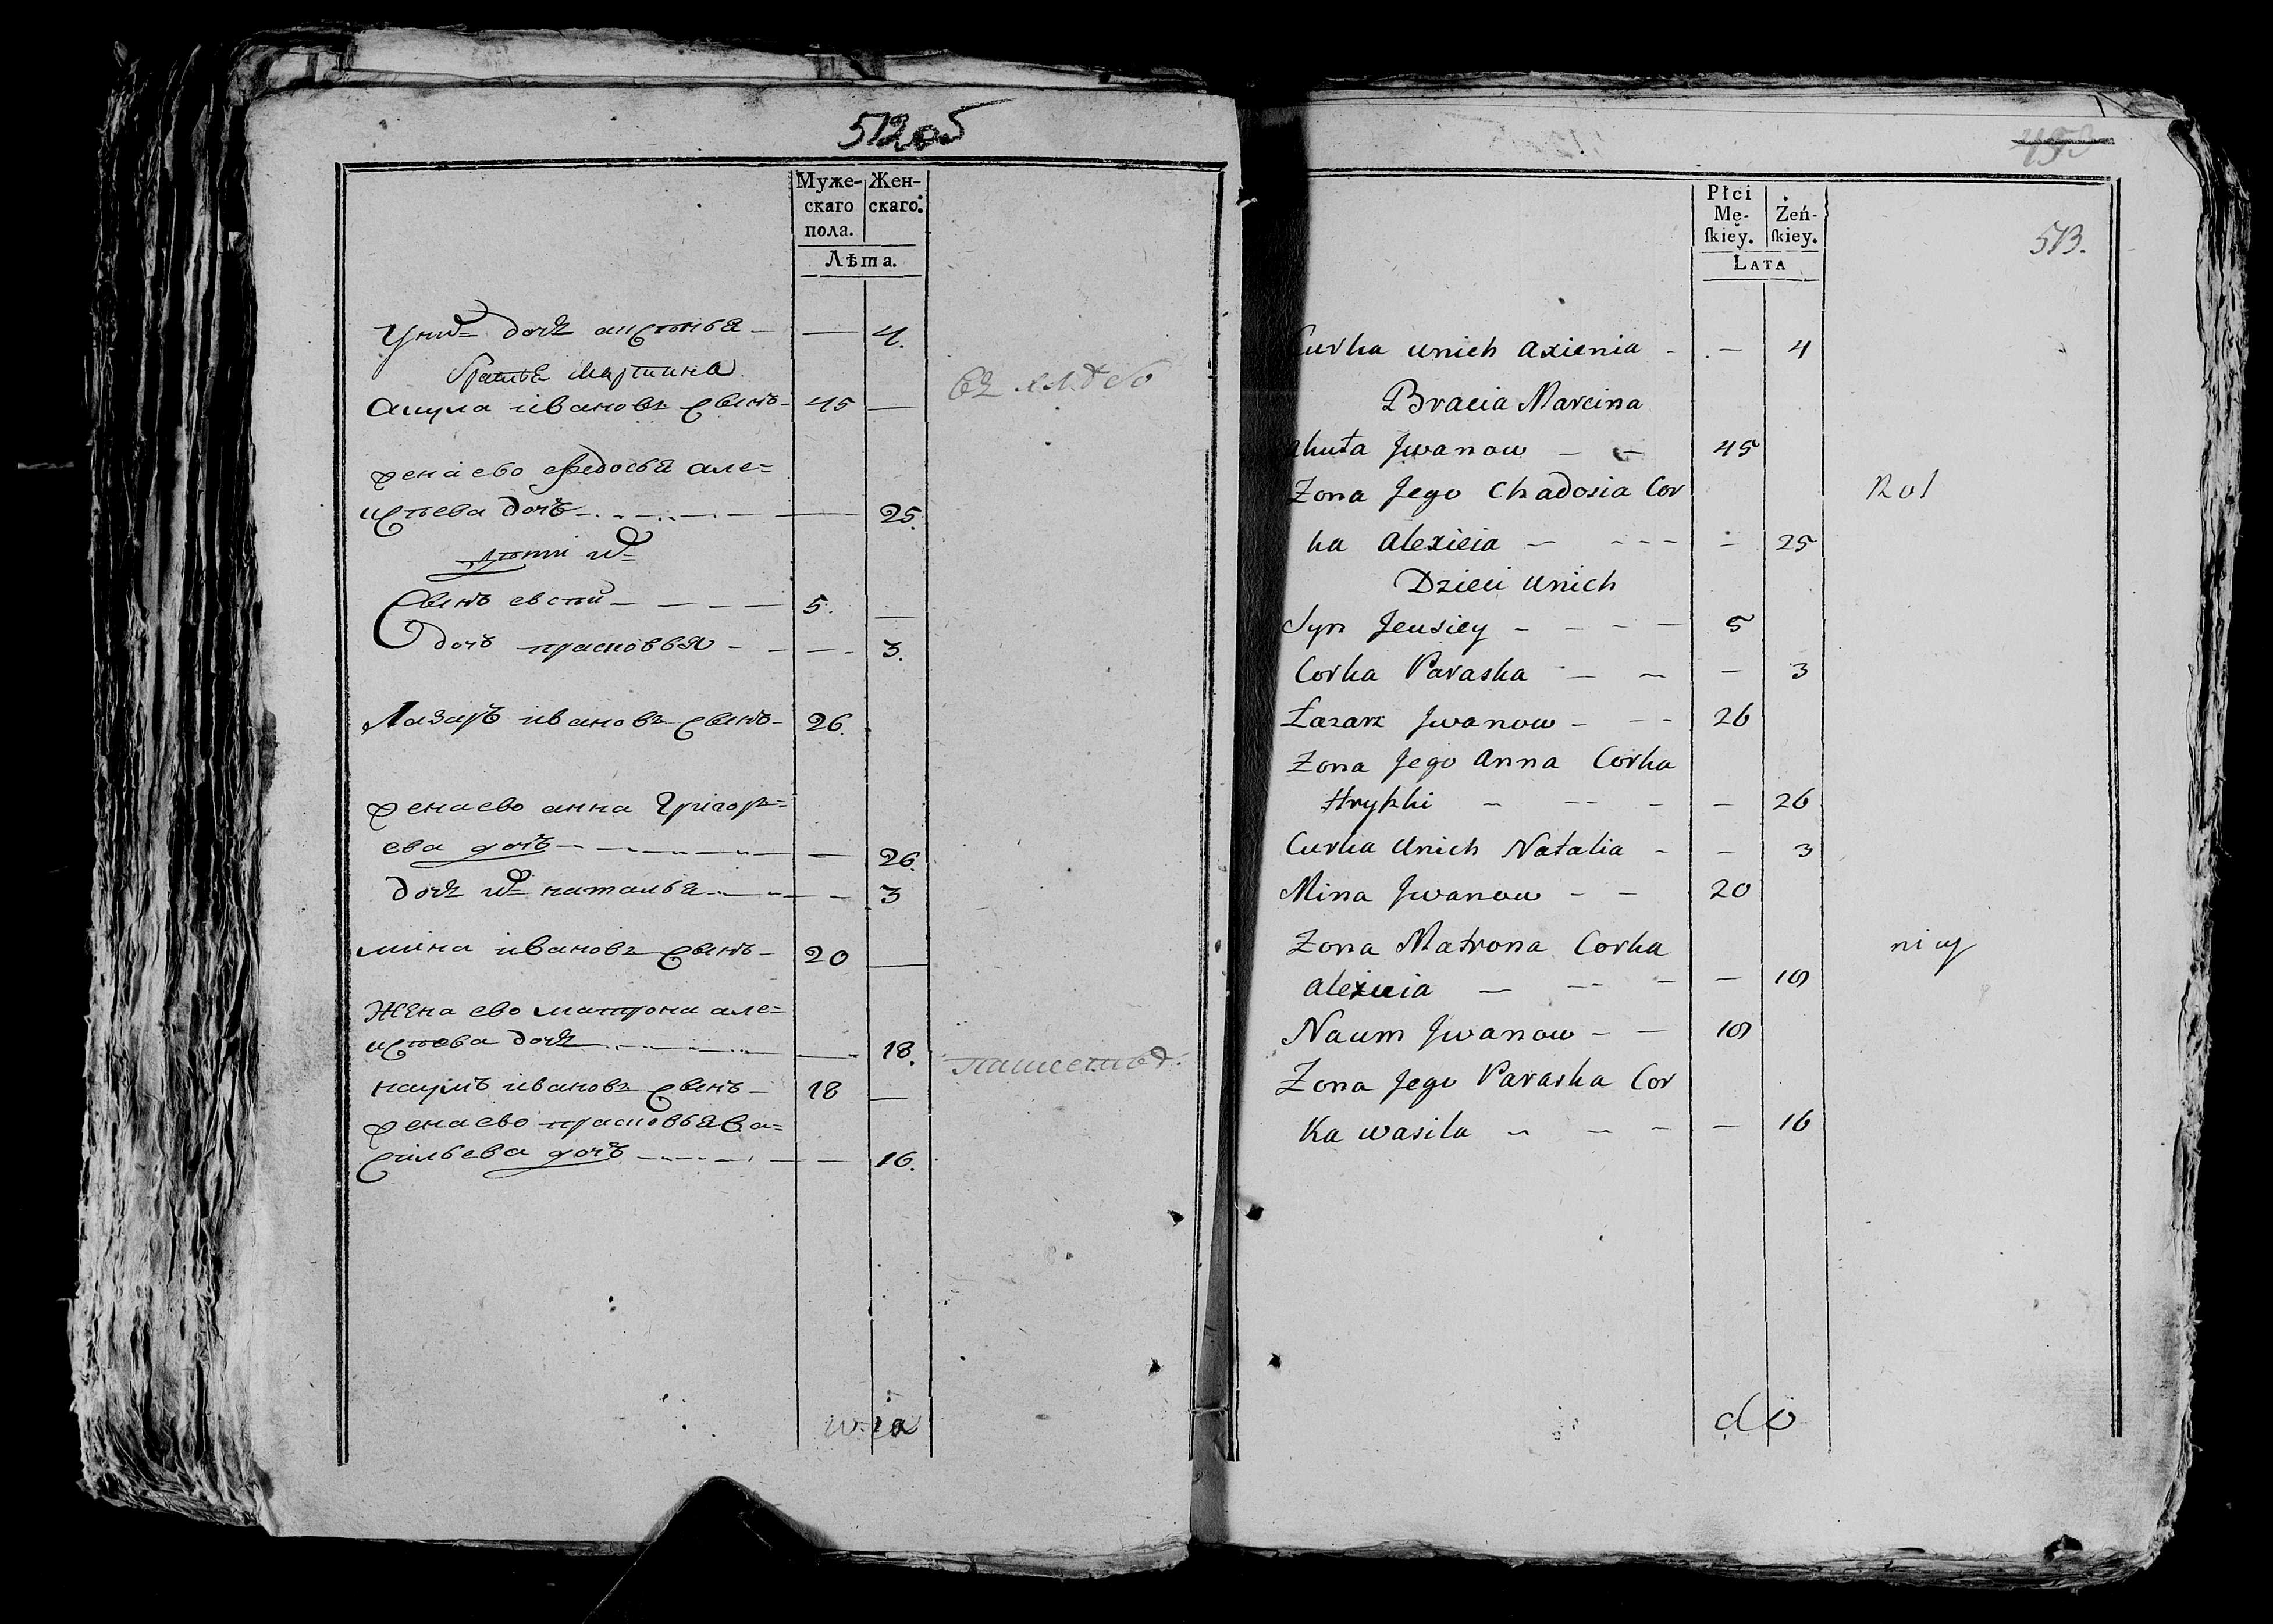 512 об
Муже-
скаго
пола.
Жен-
скаго.
Лѣта.
У них дочь аксинья — — 4.
братья Мартина
Акула ивановъ сынъ 45 —
жена ево федосья але=
ксѣева дочь — 25.
дѣти их
сынъ евсей — 5. —
дочь прасковья — — 3.
Лазарь ивановъ сынъ 26.
жена ево анна Григорь=
ева дочь — — 26.
дочь их наталья — — 3
мина ивановъ сынъ 20 —
жена ево матрона але=
ксѣева дочь — 18.
наумъ ивановъ сынъ 18 —
жена ево прасковья ва=
сильева дочь — — 16.
513.
Płci
Mę-
skiey.
Żeń-
skiey.
LATA
Curka unich Axienia — 4
Bracia Marcina
Jwanow — 45
Zona Jego Chadosia Cor
ka Alexieia — 25
Dzieci unich
Syn Jeusiey — 5
Corka Paraska — 3
Łazarz Jwanow — 26
Zona Jego Anna Corka
Hryszki — 26
Curka Unich Natalia — 3
Mina Jwanow — 20
Zona Matrona Corka
Alexieia — 18
Naum Jwanow — 18
Zona Jego Paraska Cor
ka wasila — 16
Rol
nicy
do